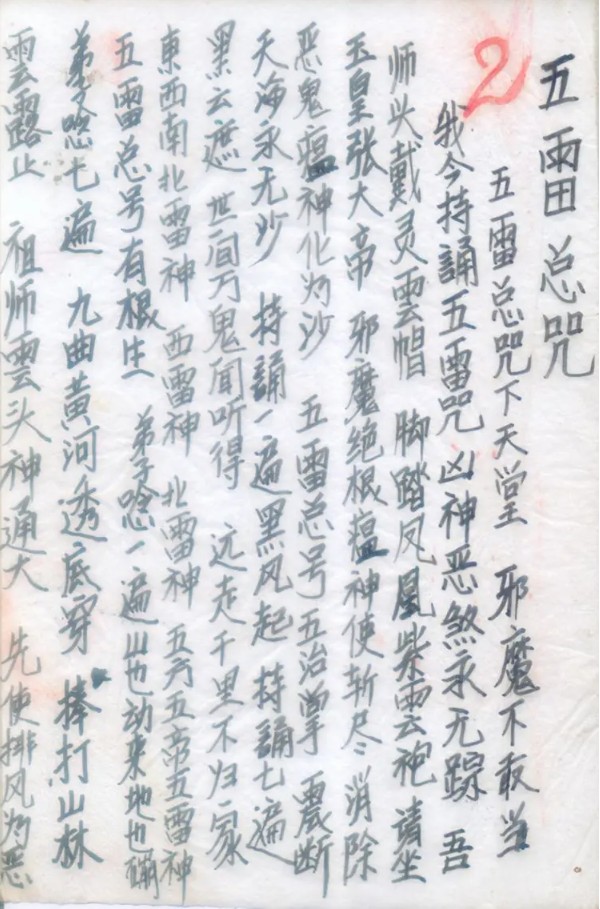 2
五雷总咒
五雷总咒下天堂 邪魔不敢当
我今持誦五雷咒 凶神恶煞永无踪 吾
师头戴灵雲帽 脚踏凤凰紫雲袍 请坐
玉皇张大帝 邪魔绝根瘟神使斩尽 消除
恶鬼瘟神化为沙 五雷总号五治掌 震断
天海永无沙 持誦一遍黑风起 持誦七遍
黑云遮 世间万鬼闻听得 远走千里不归家
東西南北雷神 西雷神 北雷神 五方五帝五雷神
五雷总号有根生 弟子唸一遍山也动来地也崩
弟子唸七遍 九曲黄河透底穿 捧打山林
雲露止 祖师雲头神通大 先使排风为恶